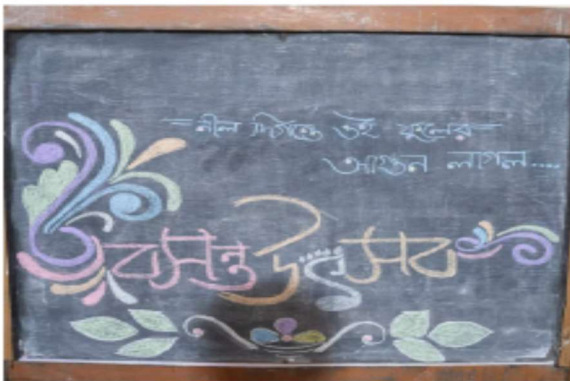 নীল দিগন্তে ওই ফুলের
আগুন লাগল....
বসন্ত উৎসব